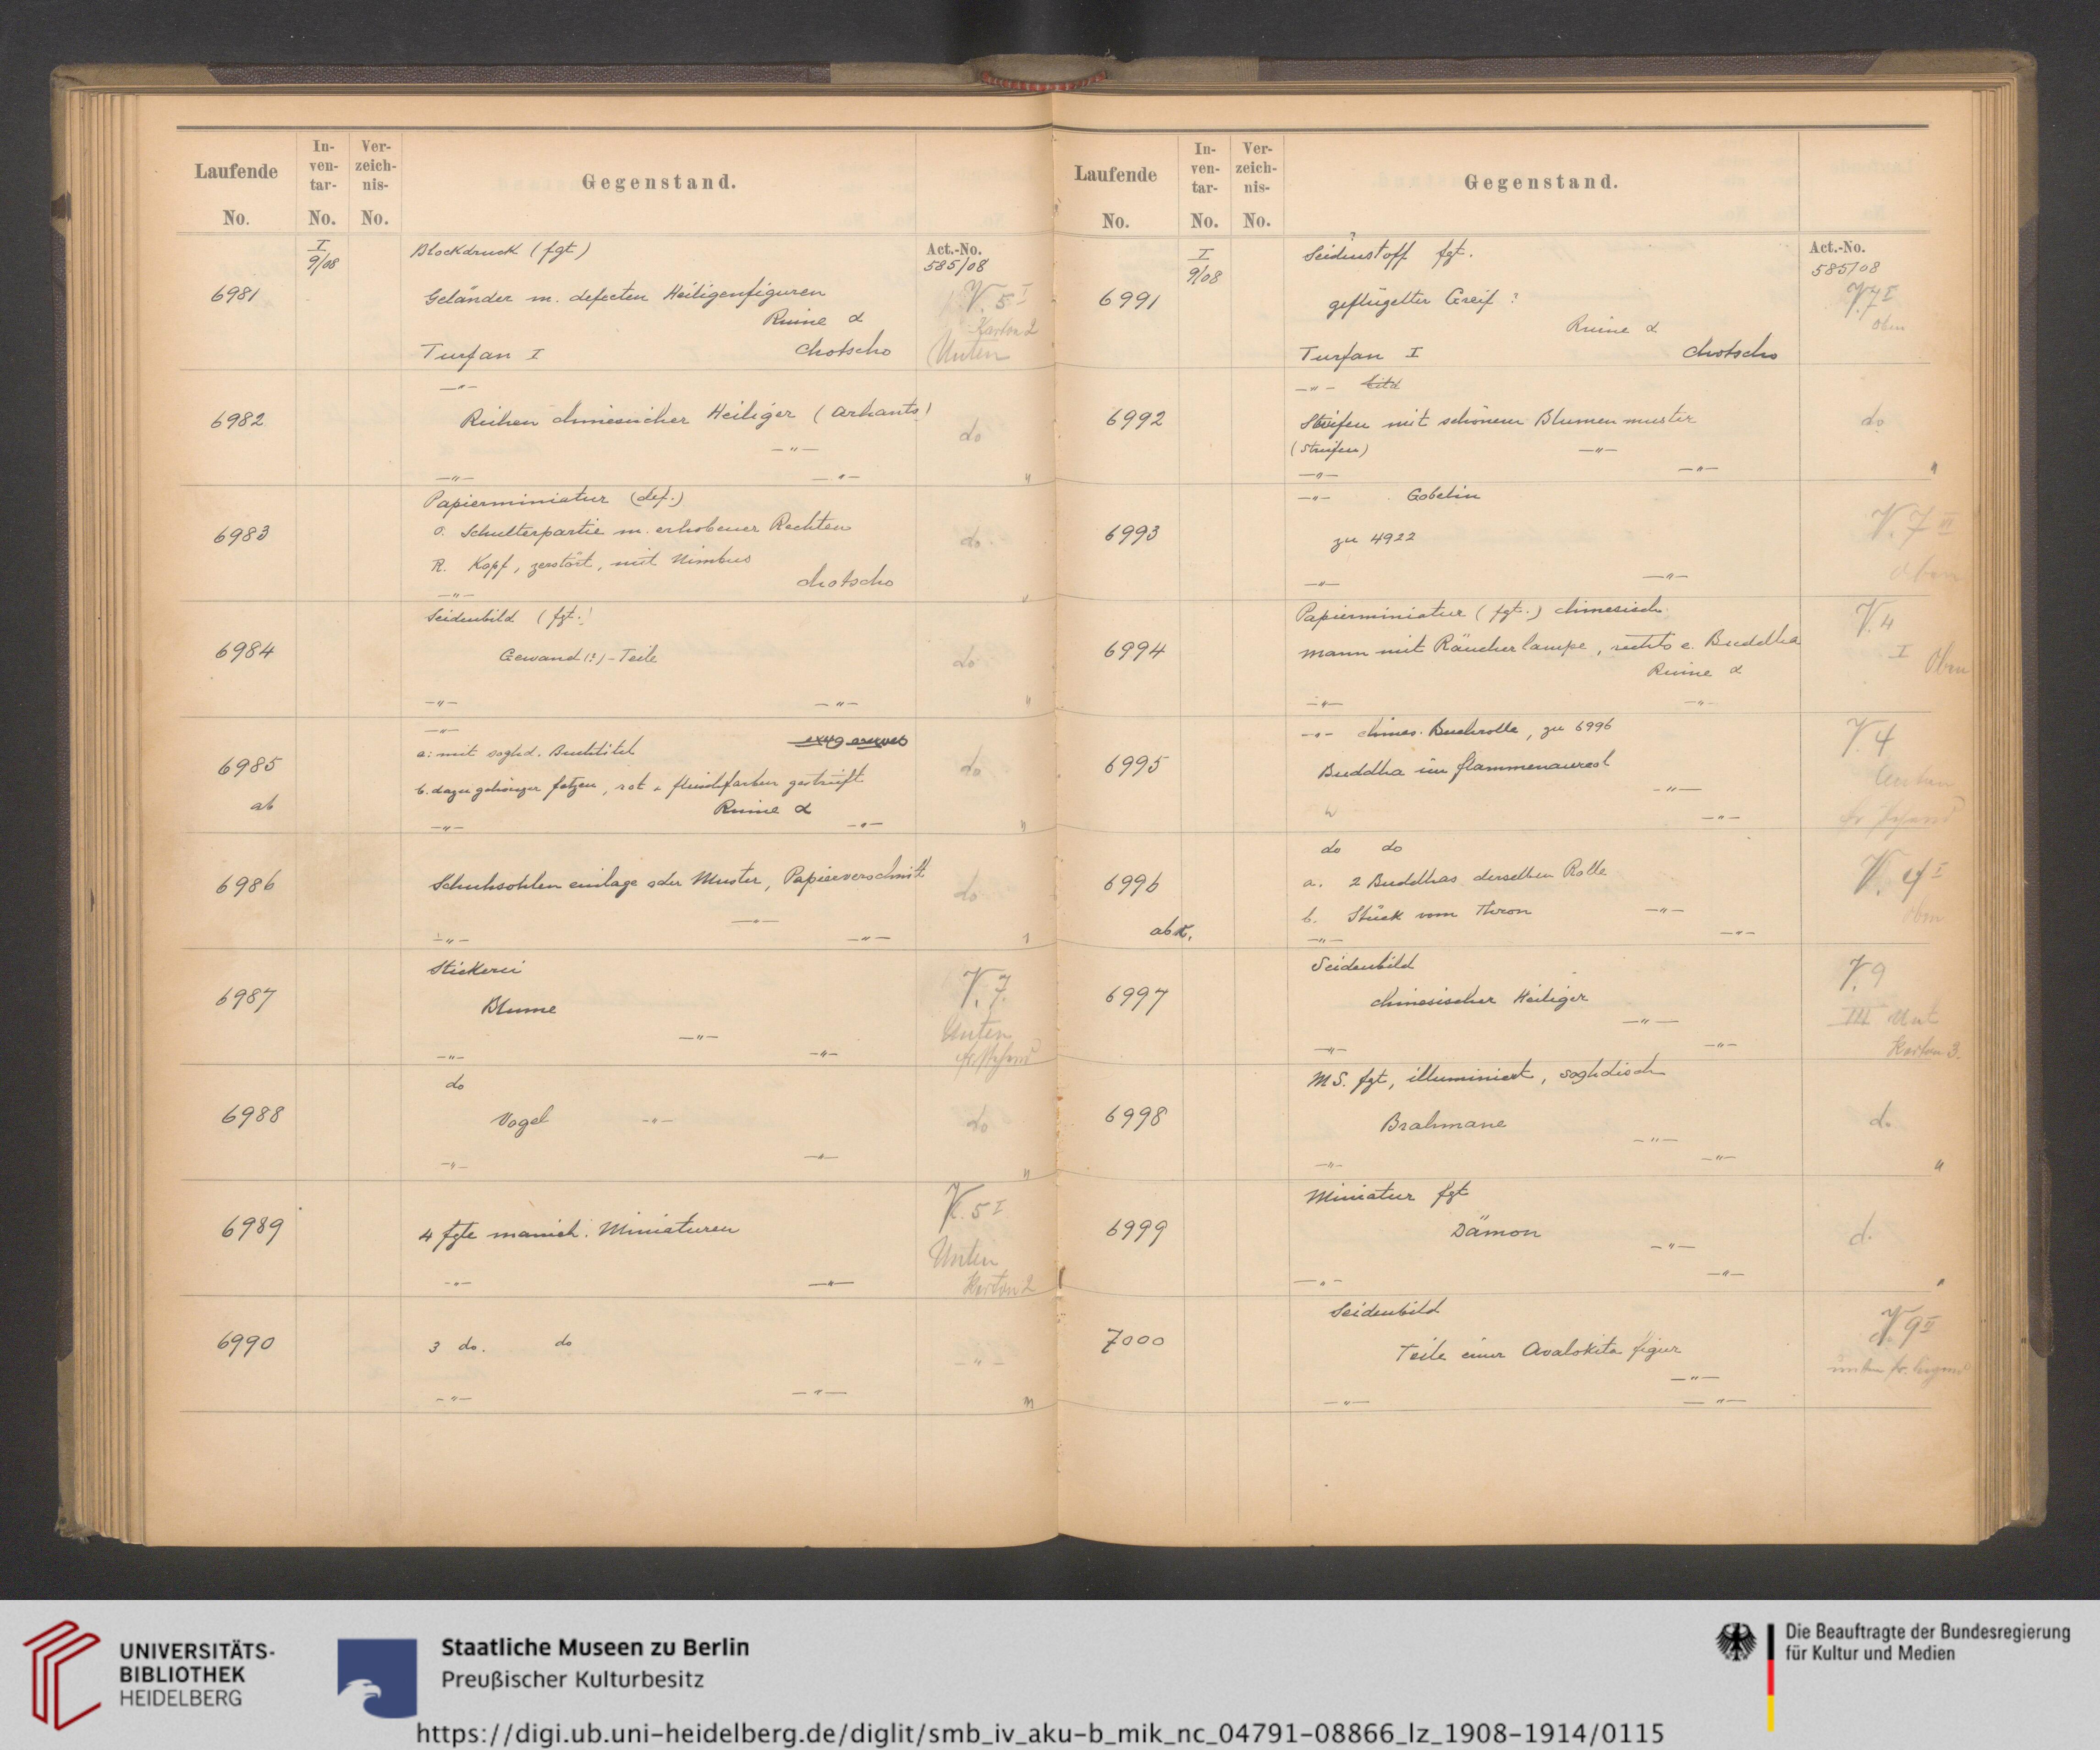 Laufende No.
In-ven-tar-No.
Ver-zeich-nis-No.
Gegenstand.
I 9/08
Blockdruck (fgt)
Act.-No.
585/08
6981
Geländer m. defecten Heiligenfiguren
V. 5 I
Ruine α
Karton 2
Turfan I
Chotscho
Unten
—"—
6982
Reihen chinesischer Heiliger (Arhants)
do
—"—
—"— —"— "
Papierminiatur (def.)
6983
O. Schulterpartie m. erhobener Rechten
do.
R. Kopf, zerstört, mit Nimbus
Chotscho
—"— "
Seidenbild (fgt.)
6984
Gewand(?)-Teile
do
—"— —"— "
—"—
a: mit soghd. Buchtitel
6985
do
b. dazu gehöriger fetzen, rot u fleischfarben gestreift
ab
Ruine α
—"— —"— "
6986
Schuhsohleneinlage oder Muster, Papierverschnitt
do
—"—
—"— —"—
Stickerei
6987
Blume
V. 7.
—"—
Unten
—"— —"—
do
6988
Vogel —"—
do
—"— —"— "
V. 5 I
6989
4 fgte manich. Miniaturen
Unten
—"— —"—
Karton 2
6990
3 do. do
—"—
—"— —"— "
Laufende No.
In-ven-tar-No.
Ver-zeich-nis-No.
Gegenstand.
I 9/08
?
Seidenstoff fgt.
Act.-No.
585/08
6991
geflügelter Greif ?
V. 7 I
Ruine α
oben
Turfan I
Chotscho
—"— bild
6992
Streifen mit schönem Blumenmuster
do
(Streifen) —"—
—"— —"— "
—"— Gobelin
6993
V. 7 II
zu 4922
oben
—"— —"—
Papierminiatur (fgt.) chinesisch
V. 4
6994
Mann mit Räucherlampe, rechts e. Buddha
I Oben
Ruine α
—"— —"—
—"— chines. Buchrolle, zu 6996
V. 4
6995
Buddha im flammenaureol
Unten
—"—
" —"—
do do
6996
a. 2 Buddhas derselben Rolle
V. 4 I
b. Stück vom Thron —"—
oben
ab
—"— —"—
Seidenbild
V. 9
6997
chinesischer Heiliger
—"—
III Unt
—"— —"—
Karton 3.
MS. fgt, illuminiert, soghdisch
6998
Brahmane
d.
—"—
—"— —"— "
Miniatur fgt
6999
Dämon
d.
—"—
—"— —"— "
Seidenbild
V 9 II
7000
Teile einer Avalokita figur
—"—
—"— —"—
UNIVERSITÄTS-
BIBLIOTHEK
HEIDELBERG
Staatliche Museen zu Berlin
Preußischer Kulturbesitz
Die Beauftragte der Bundesregierung
für Kultur und Medien
https://digi.ub.uni-heidelberg.de/diglit/smb_iv_aku-b_mik_nc_04791-08866_lz_1908-1914/0115